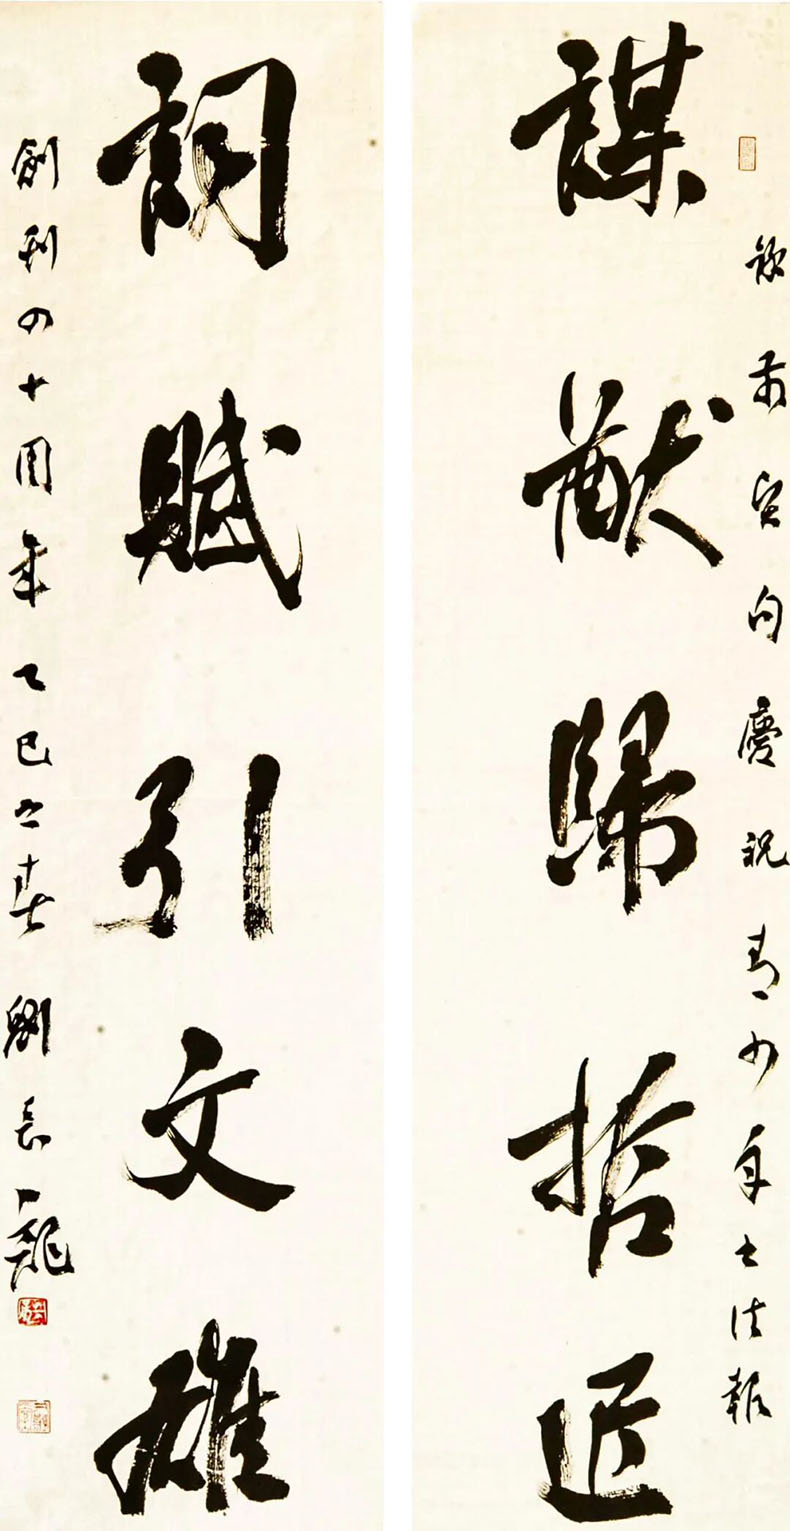 謀猷歸哲匠
錄前賢句慶祝青少年书法報
詞賦引文雄
創刊四十周年乙巳之春劉長龍